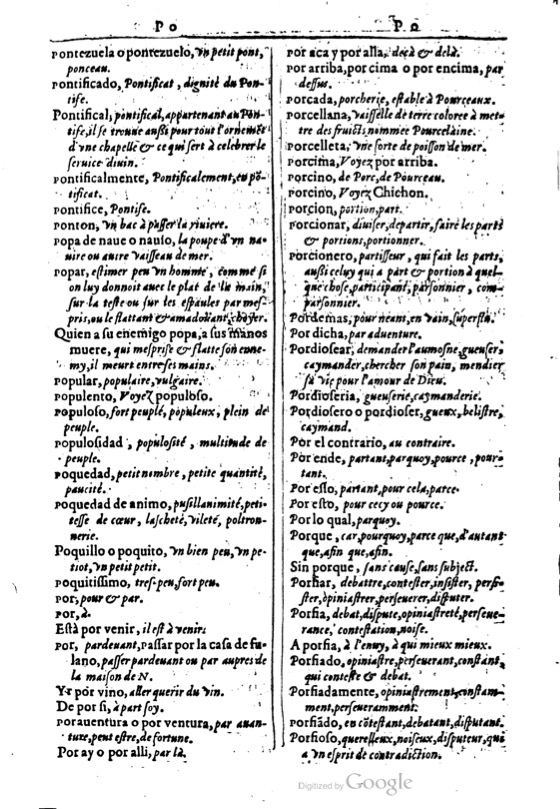 Po
pontezuela o pontezuelo, vn petit pont,
ponceau.
pontificado, Pontificat, dignité du Pon-
tife.
Pontifical, pontifical, appartenant au Pon-
tife, il se trouue außi pour tout l'ornemēt
d'vne chapelle & ce qui sert à celebrer le
seruice diuin.
pontificalmente, Pontificalement, en pō-
tificat.
pontifice, Pontife.
ponton, vn bac à passer la riuiere.
popa de naue o nauio, la poupe d'vn na-
uire ou autre vaisseau de mer.
popar, estimer peu vn homme, comme si
on luy donnoit auec le plat de la main,
sur la teste ou sur les espaules par mes-
pris, ou le flattant & amadouant, choyer.
Quien a su enemigo popa, a sus manos
muere, qui mesprise & flatte son enne-
my, il meurt entre ses mains.
popular, populaire, vulgaire.
populento, Voyez populoso.
populoso, fort peuplé, populeux, plein de
peuple.
populosidad, populosité, multitude de
peuple.
poquedad, petit nombre, petite quantité,
paucité.
poquedad de animo, pusillanimité, peti-
tesse de cœur, lascheté, vileté, poltron-
nerie.
Poquillo o poquito, vn bien peu, vn pe-
tiot, vn petit petit.
poquitissimo, tres-peu, fort peu.
por, pour & par.
por, à.
Està por venir, il est à venir.
por, pardeuant, passar por la casa de fu-
lano, passer pardeuant ou par aupres de
la maison de N.
Yr por vino, aller querir du vin.
De por si, à part soy.
porauentura o por ventura, par auan-
ture, peut estre, de fortune.
Por ay o por alli, par là.
Po
por aca y por alla, deçà & delà.
por arriba, por cima o por encima, par
dessus.
porcada, porcherie, estable à Pourceaux.
porcellana, vaisselle de terre coloree à met-
tre des fruicts, nommée Pourcelaine.
porcelleta, vne sorte de poisson de mer.
porcima, Voyez por arriba.
porcino, de Porc, de Pourceau.
porcino, Voyez Chichon.
porcion, portion, part.
porcionar, diuiser, departir, faire les parts
& portions, portionner.
porcionero, partisseur, qui fait les parts,
außi celuy qui a part & portion à quel-
que chose, participant, parsonnier, com-
parsonnier.
Pordemas, pour neant, en vain, superflu.
Por dicha, par aduenture.
Pordiosear, demander l'aumosne, gueuser,
caymander, chercher son pain, mendier
sa vie pour l'amour de Dieu.
Pordioseria, gueuserie, caymanderie.
Pordiosero o pordioser, gueux, belistre,
caymand.
Por el contrario, au contraire.
Por ende, partant, parquoy, pource, pour-
tant.
Por esso, partant, pour cela, parce.
Por esto, pour cecy ou pource.
Por lo qual, parquoy.
Porque, car, pourquoy, parce que, d'autant
que, afin que, afin.
Sin porque, sans cause, sans subject.
Porfiar, debattre, contester, insister, persi-
ster, opiniastrer, perseuerer, disputer.
Porfia, debat, dispute, opiniastreté, perseue-
rance, contestation, noise.
A porfia, à l'enuy, à qui mieux mieux.
Porfiado, opiniastre, perseuerant, constant,
qui conteste & debat.
Porfiadamente, opiniastrement, constam-
ment, perseueramment.
Porfiãdo, en cōtestant, debatant, disputant.
Porfioso, querelleux, noiseux, disputeur, qui
a vn esprit de contradiction.
Digitized by Google